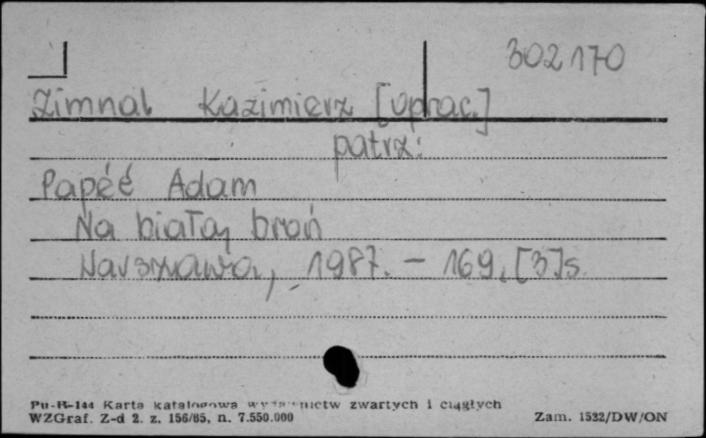 302170
Zimnal Kazimierz [oprac.]
patrz:
Papéé Adam
Na białą broń
Warszawa, 1987. – 169, [3]s.
Pu-B-144 Karta katalogowa wydawnictw zwartych i ciągłych
WZGraf. Z-d 2. z. 156/85, n. 7.550.000
Zam. 1532/DW/ON